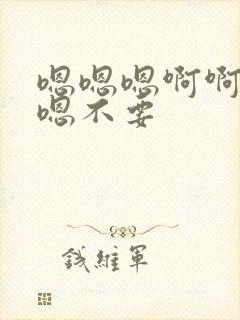 嗯嗯嗯啊啊
嗯不要
钱維軍